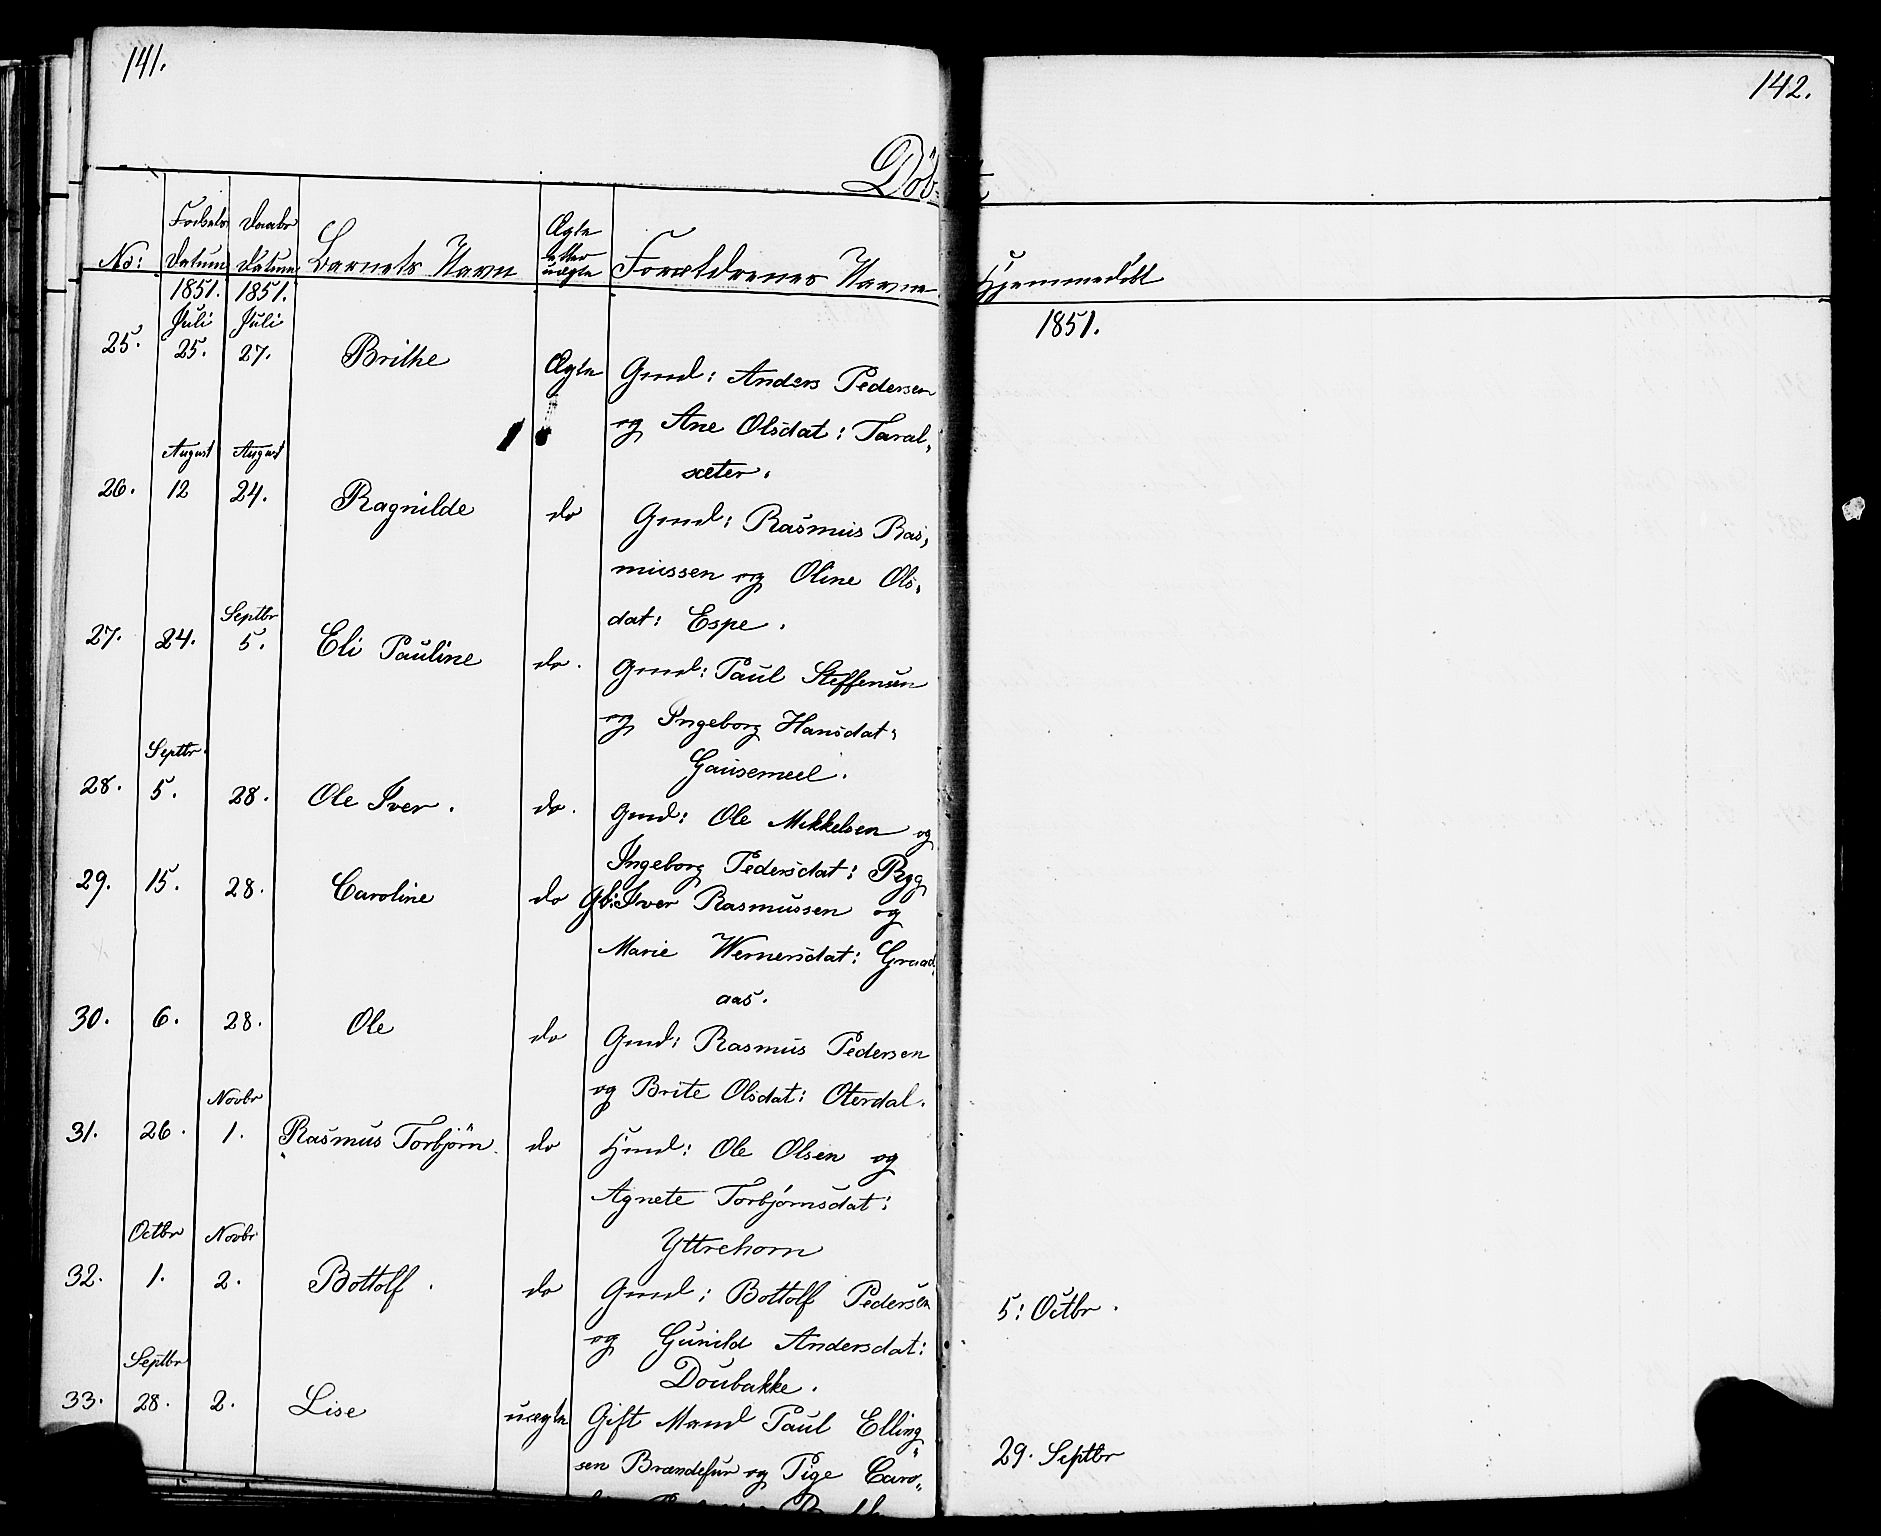 141.
142.
Döbt
No:
Fødsels Datum
Daabs Datum
Barnets Navn
Ægte eller uægte
Forældrenes Navne
Hjemmedöbt
1851. 1851. 1851.
Juli Juli
25. 25. 27. Brithe Ægte Gmd: Anders Pedersen
og Ane Olsdat: Taral-
sæter.
August August
26. 12 24. Ragnilde do Gmd: Rasmus Ras-
mussen og Oline Ols-
dat: Espe.
Septbr
27. 24. 5. Eli Pauline do. Gmd: Paul Steffensen
og Ingeborg Hansdat:
Gausemeel.
Septbr.
28. 5. 28. Ole Iver. do. Gmd: Ole Mikkelsen og
Ingeborg Pedersdat: Ryg
29. 15. 28. Caroline do Gb: Iver Rasmussen og
Marie Wernersdat: Graad-
aas.
30. 6. 28. Ole do Gmd: Rasmus Pedersen
og Brite Olsdat: Oterdal.
Novbr
31. 26. 1. Rasmus Torbjörn. do Hmd: Ole Olsen og
Agnete Torbjørnsdat:
Yttrehorn
Octbr Novbr
32. 1. 2. Bottolf. do Gmd: Bottolf Pedersen
5: Octbr.
og Gunild Andersdat:
Doubakke.
Septbr
33. 28. 2. Lise uægte Gift Mand Paul Elling-
29. Septbr
sen Brændefur og Pige Caro-